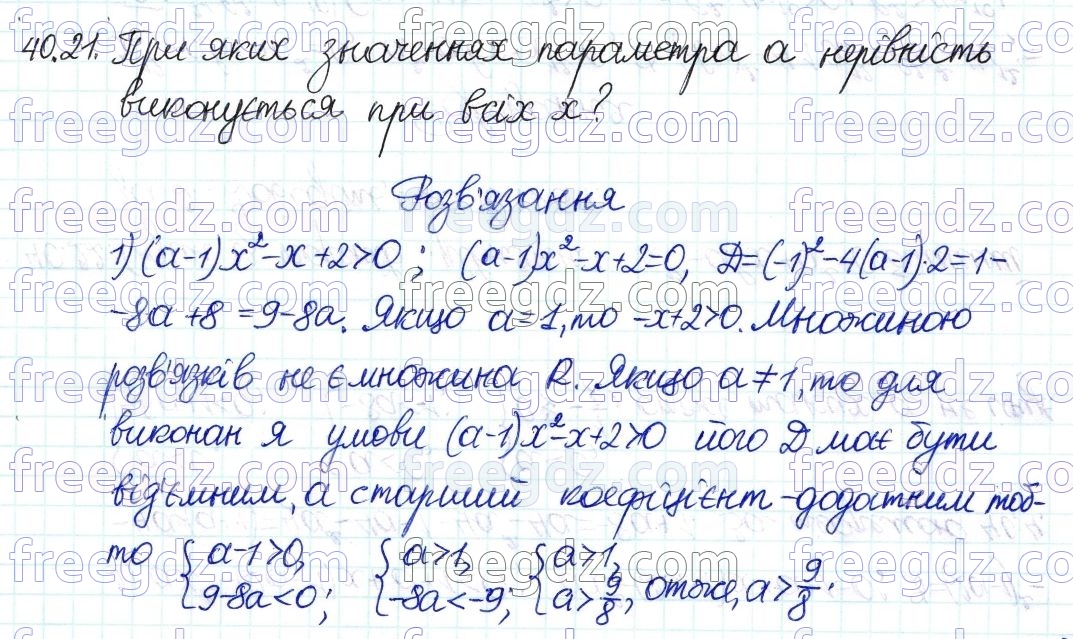 40.21. При яких значеннях параметра а нерівність
виконується при всіх х?
Розв'язання
1) (a-1)x²-x+2>0; (a-1)x²-x+2=0, D=(-1)²-4(a-1)·2=1-
-8a+8=9-8a. Якщо a=1, то -x+2>0. Множиною
розв'язків не є множина R. Якщо a≠1, то для
виконан я умови (a-1)x²-x+2>0 його D має бути
від'ємним, а старший коефіцієнт - додатним тоб-
то { a-1>0, { a>1, { a>1,
9-8a<0; -8a<-9; a>9/8, отже, a>9/8.